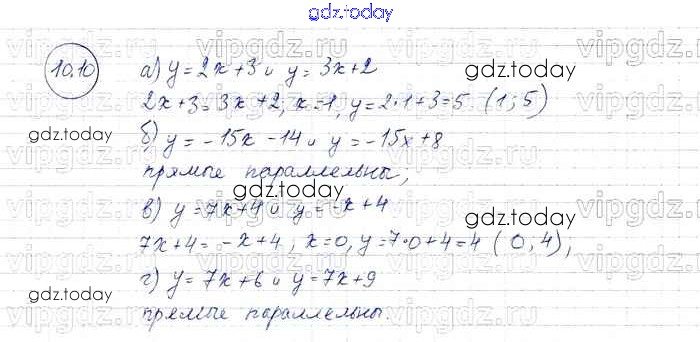 gdz.today
10.10
а) y = 2x + 3 и y = 3x + 2
gdz.today
2x + 3 = 3x + 2, x = 1, y = 2·1 + 3 = 5 (1; 5)
gdz.today
б) y = -15x - 14 и y = -15x + 8
прямые параллельны;
gdz.today
в) y = 7x + 4 и y = -x + 4
gdz.today
7x + 4 = -x + 4; x = 0, y = 7·0 + 4 = 4 (0, 4);
г) y = 7x + 6 и y = 7x + 9
gdz.today
gdz.today
прямые параллельны.
vipgdz.ru